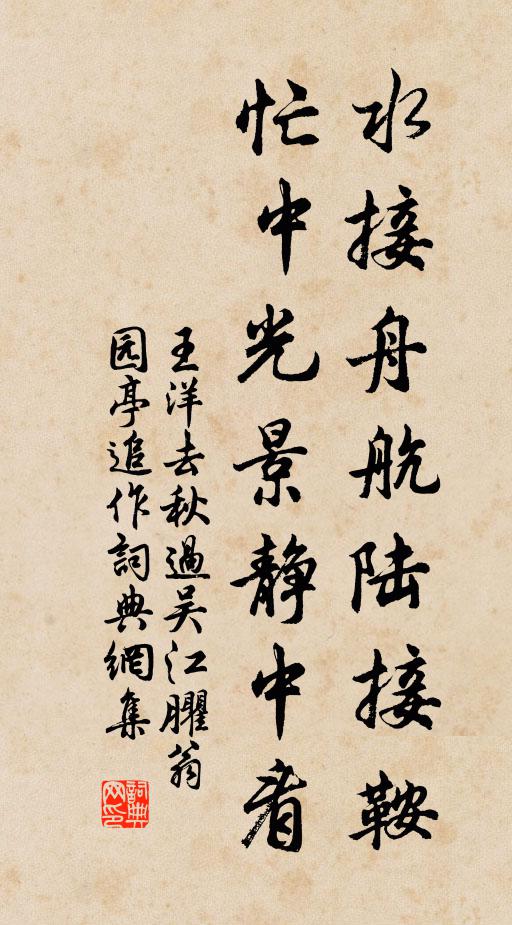 水接舟航陆接鞍
忙中光景静中看
王洋去秋過吴江臞翁
园亭追作詞典網集
詞典
网印